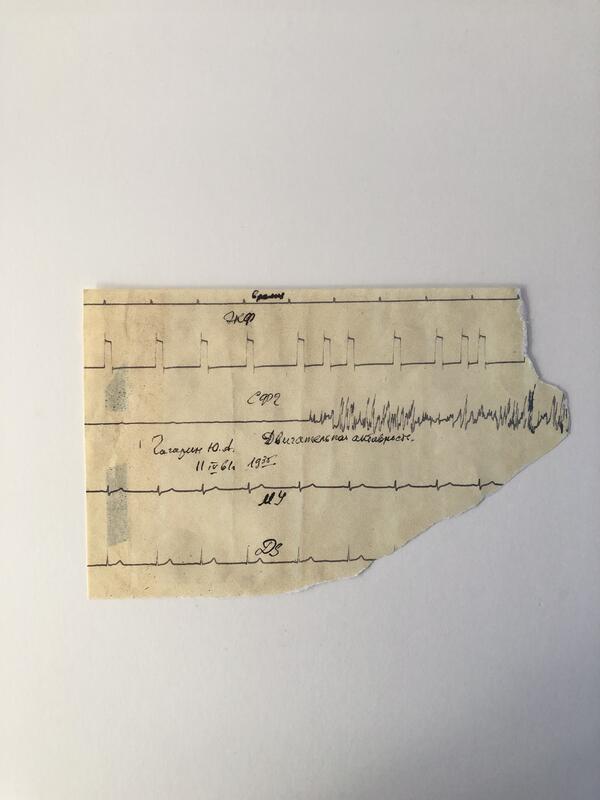 Время
ЭКФ
СФГ
Гагарин Ю.А. Двигательная активность.
11 IV 61г. 19 35
МУ
ДЗ